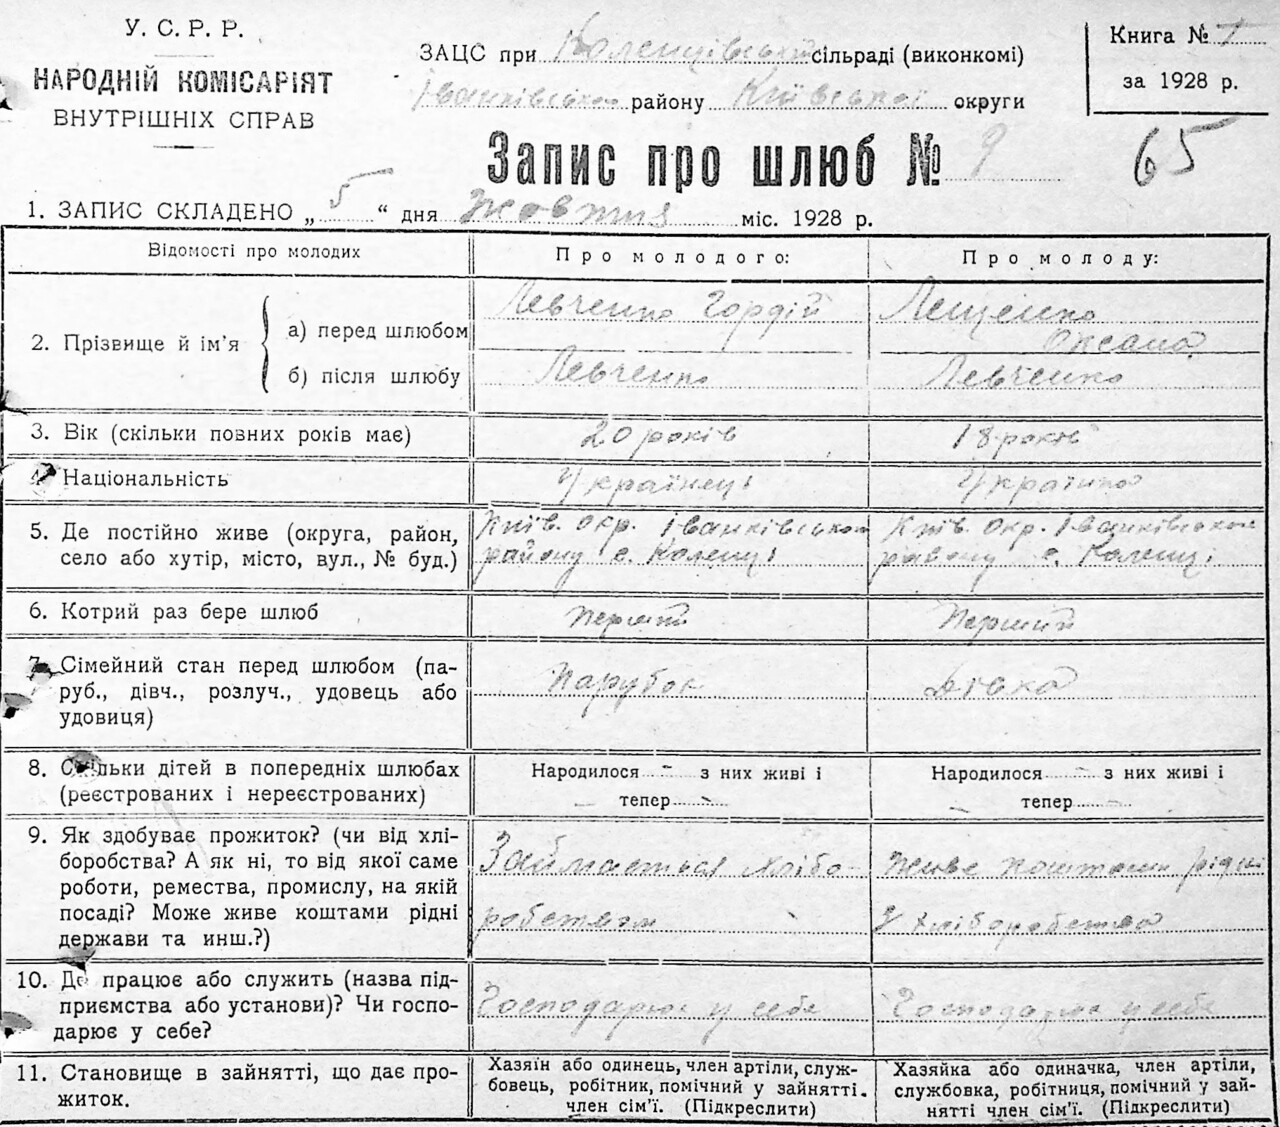 У. С. Р. Р.
НАРОДНІЙ КОМІСАРІЯТ
ВНУТРІШНІХ СПРАВ
ЗАЦС при Коленцівській сільраді (виконкомі)
Іванківського району Київської округи
Книга №
за 1928 р.
Запис про шлюб № 9
65
1. ЗАПИС СКЛАДЕНО „ 5 “ дня жовтня міс. 1928 р.
Відомості про молодих
Про молодого:
Про молоду:
2. Прізвище й ім'я
а) перед шлюбом
Левченко Гордій
Лещенко
Оксана
б) після шлюбу
Левченко
Левченко
3. Вік (скільки повних років має)
20 років
18 років
4. Національність
Українець
Українка
5. Де постійно живе (округа, район,
село або хутір, місто, вул., № буд.)
Київ. окр. Іванківського
району с. Коленці
Київ. окр. Іванківського
району с. Коленці
6. Котрий раз бере шлюб
перший
перший
7. Сімейний стан перед шлюбом (па-
руб., дівч., розлуч., удовець або
удовиця)
парубок
дівка
8. Скільки дітей в попередніх шлюбах
(реєстрованих і нереєстрованих)
Народилося - з них живі і
тепер -
Народилося - з них живі і
тепер -
9. Як здобуває прожиток? (чи від хлі-
боробства? А як ні, то від якої саме
роботи, ремества, промислу, на якій
посаді? Може живе коштами рідні
держави та инш.?)
Займається хлібо
робством
живе коштами рідні
з хліборобства
10. Де працює або служить (назва під-
приємства або установи)? Чи госпо-
дарює у себе?
Господарює у себе
Господарює у себе
11. Становище в зайнятті, що дає про-
житок.
Хазяїн або одинець, член артілі, служ-
бовець, робітник, помічний у зайнятті.
член сім'ї. (Підкреслити)
Хазяйка або одиначка, член артіли,
службовка, робітниця, помічний у зай-
нятті член сім'ї. (Підкреслити)